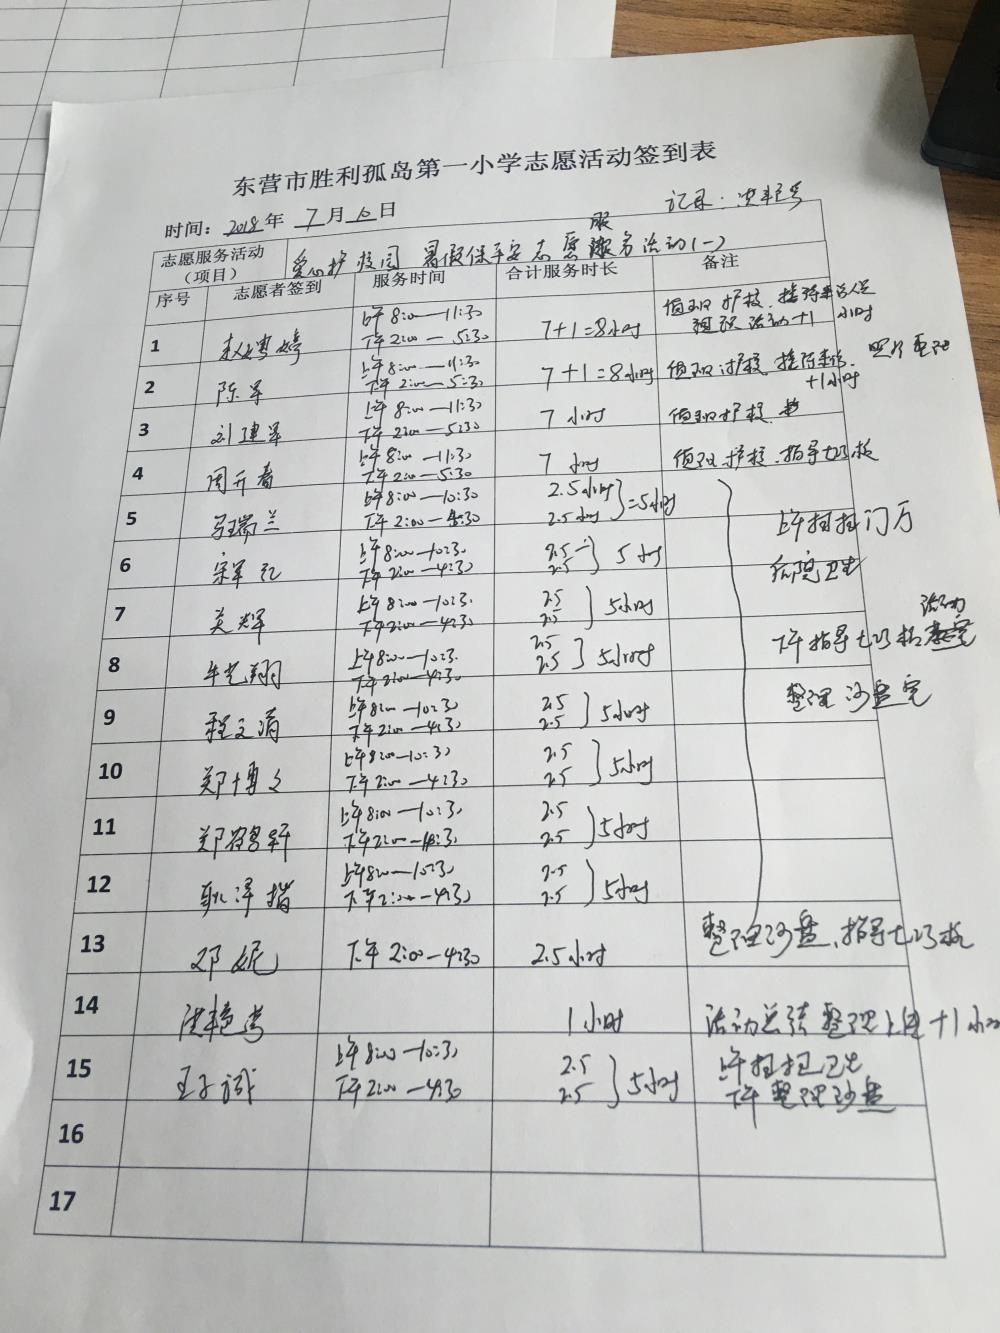 东营市胜利孤岛第一小学志愿活动签到表
时间：2018年 7月 10日 记录：洪艳
志愿服务活动（项目） 爱心护校园 暑假保平安 志愿服务活动(一)
序号 志愿者签到 服务时间 合计服务时长 备注
1 上午8:00—11:30 7+1=8小时 值班护校、
下午2:00—5:30 活动+1小时
2 陈军 上午8:00—11:30 7+1=8小时 值班护校、 照片整理
下午2:00—5:30 +1小时
3 刘建军 上午8:00—11:30 7小时 值班护校、
下午2:00—5:30
4 周开春 上午8:00—11:30 7小时 值班护校、指导七巧板
下午2:00—5:30
5 马瑞兰 上午8:00—10:30 2.5小时 =5小时
下午2:00—4:30 2.5小时
上午扫扫门厅
6 宋军红 上午8:00—10:30 2.5 5小时
下午2:00—4:30 2.5
后院卫生
7 英辉 上午8:00—10:30 2.5 5小时
下午2:00—4:30 2.5
下午指导七巧板活动
8 牛艺翔 上午8:00—10:30 2.5 5小时
下午2:00—4:30 2.5
整理沙盘室
9 程文 上午8:00—10:30 2.5 5小时
下午2:00—4:30 2.5
10 郑博文 上午8:00—10:30 2.5 5小时
下午2:00—4:30 2.5
11 郑 轩 上午8:00—10:30 2.5 5小时
下午2:00—4:30 2.5
12 耿泽楷 上午8:00—10:30 2.5 5小时
下午2:00—4:30 2.5
13 邓妮 下午2:00—4:30 2.5小时 整理沙盘、指导七巧板
14 洪艳 1小时 活动总结整理上传+1小
15 王子诚 上午8:00—10:30 2.5 5小时 上午扫扫卫生
下午2:00—4:30 2.5 下午整理沙盘
16
17